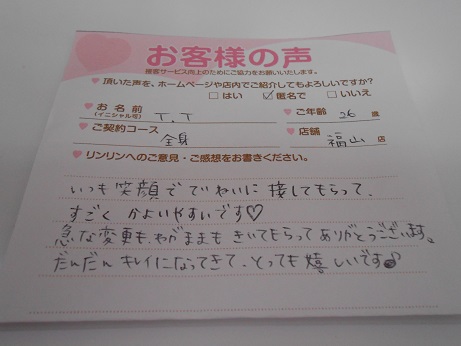 お客様の声
接客サービス向上のためにご協力をお願いいたします。
♥ 頂いた声を、ホームページや店内でご紹介してもよろしいですか?
□ はい ☑ 匿名で □ いいえ
♥ お名前 (イニシャル可) T.T ♥ ご年齢 26 歳
♥ ご契約コース 全身 ♥ 店舗 福山 店
♥ リンリンへのご意見・ご感想をお書きください。
いつも笑顔で ていねいに 接してもらって、
すごく かよいやすいです♡
急な変更も、わがままも きいてもらって ありがとうございます。
だんだん キレイになってきて、とっても 嬉しいです♪